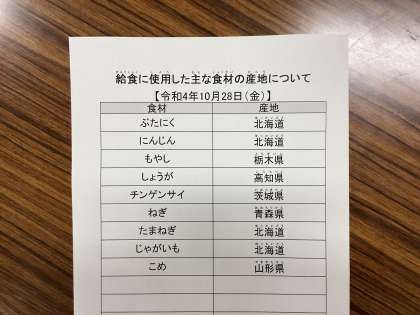 給食に使用した主な食材の産地について
【令和4年10月28日（金）】
食材 産地
ぶたにく 北海道
にんじん 北海道
もやし 栃木県
しょうが 高知県
チンゲンサイ 茨城県
ねぎ 青森県
たまねぎ 北海道
じゃがいも 北海道
こめ 山形県